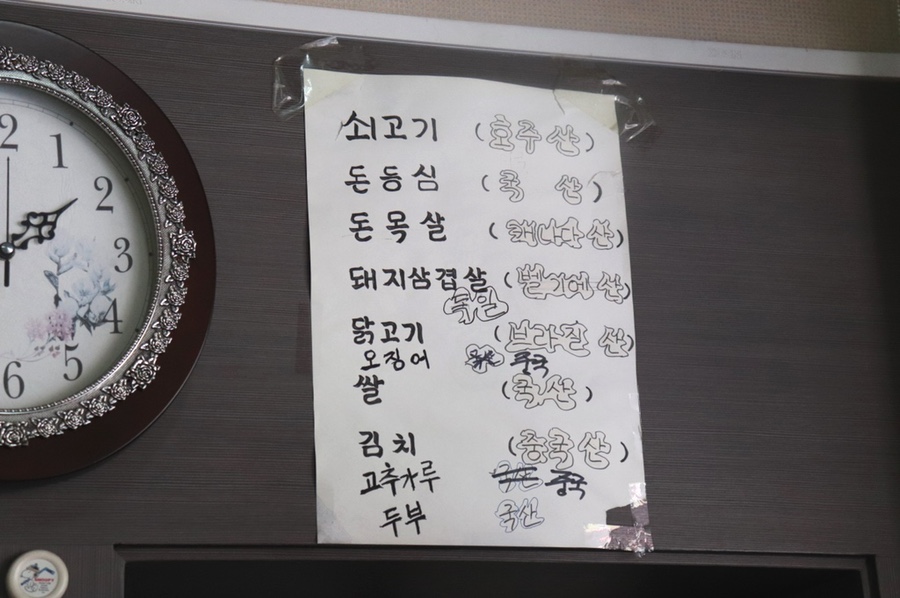 쇠고기 (호주산)
돈등심 (국 산)
돈목살 (캐나다산)
돼지삼겹살 (벨기에산)
독일
닭고기 (브라질산)
오징어 중국
쌀 (국산)
김치 (중국산)
고추가루 국산 중국
두부 국산
12
1
2
3
4
5
6